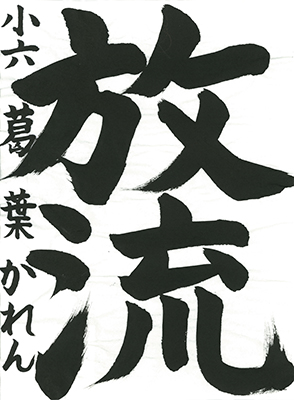 放流
小六 葛葉かれん